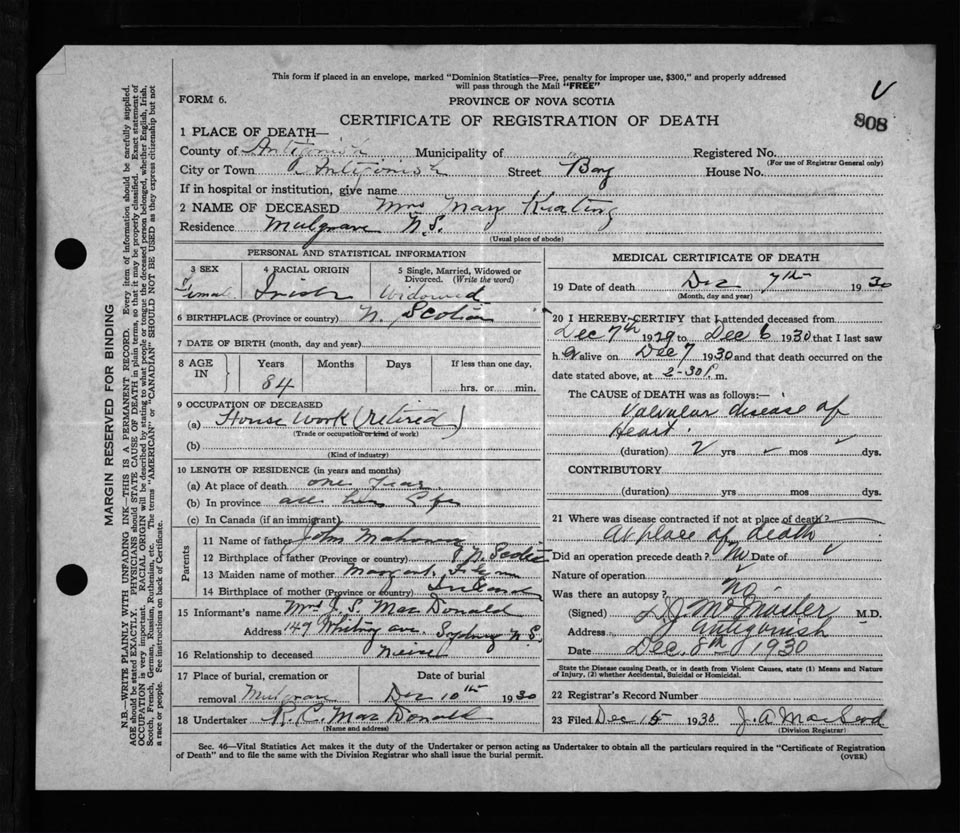 This form if placed in an envelope, marked "Dominion Statistics—Free, penalty for improper use, $300," and properly addressed
will pass through the Mail "FREE"
FORM 6.
PROVINCE OF NOVA SCOTIA
808
CERTIFICATE OF REGISTRATION OF DEATH
1 PLACE OF DEATH—
County of Antigonish Municipality of Registered No.
(For use of Registrar General only)
City or Town Antigonish Street Bay House No.
If in hospital or institution, give name
2 NAME OF DECEASED Mrs Mary Keating
Residence Mulgrave N.S.
(Usual place of abode)
PERSONAL AND STATISTICAL INFORMATION
3 SEX 4 RACIAL ORIGIN 5 Single, Married, Widowed or
Divorced. (Write the word)
Female Irish Widowed
6 BIRTHPLACE (Province or country) N. Scotia
7 DATE OF BIRTH (month, day and year)
8 AGE IN Years Months Days If less than one day,
84 hrs. or min.
9 OCCUPATION OF DECEASED
(a) House Work (retired)
(Trade or occupation or kind of work)
(b)
(Kind of industry)
10 LENGTH OF RESIDENCE (in years and months)
(a) At place of death one Year
(b) In province all her Life
(c) In Canada (if an immigrant)
Parents
11 Name of father John
12 Birthplace of father (Province or country) N. Scotia
13 Maiden name of mother Margaret Flynn
14 Birthplace of mother (Province or country) Ireland
15 Informant's name Mrs J. S. MacDonald
Address 149 Whitney ave. Sydney N.S.
16 Relationship to deceased neice
17 Place of burial, cremation or Date of burial
removal Mulgrave Dec 10th 1930
18 Undertaker R. C. MacDonald
(Name and address)
MEDICAL CERTIFICATE OF DEATH
19 Date of death Dec 7th 1930
(Month, day and year)
20 I HEREBY CERTIFY that I attended deceased from
Dec 7th 1929 to Dec 6 1930 that I last saw
h er alive on Dec 7 1930 and that death occurred on the
date stated above, at 2-30 P. m.
The CAUSE OF DEATH was as follows:—
Valvular disease of
Heart.
(duration) 2 yrs mos dys.
CONTRIBUTORY
(duration) yrs. mos. dys.
21 Where was disease contracted if not at place of death?
At place of death
Did an operation precede death? No Date of
Nature of operation
Was there an autopsy? No
(Signed) M.D.
Address Antigonish
Date Dec. 8th 1930
State the Disease causing Death, or in death from Violent Causes, state (1) Means and Nature
of Injury, (2) whether Accidental, Suicidal or Homicidal.
22 Registrar's Record Number
23 Filed Dec 15 1930 J. A. MacLeod
(Division Registrar)
Sec. 46—Vital Statistics Act makes it the duty of the Undertaker or person acting as Undertaker to obtain all the particulars required in the "Certificate of Registration
of Death" and to file the same with the Division Registrar who shall issue the burial permit.
(OVER)
MARGIN RESERVED FOR BINDING
N.B.—WRITE PLAINLY WITH UNFADING INK—THIS IS A PERMANENT RECORD. Every item of information should be carefully supplied.
AGE should be stated EXACTLY. PHYSICIANS should STATE CAUSE OF DEATH in plain terms, so that it may be properly classified. Exact statement of
OCCUPATION is very important. RACIAL ORIGIN will be described by stating to what people or tongue the deceased person belonged, whether English, Irish,
Scotch, French, German, Russian, Ruthenian, etc. The terms "AMERICAN" or "CANADIAN" SHOULD NOT BE USED as they express citizenship but not
a race or people. See instructions on back of Certificate.